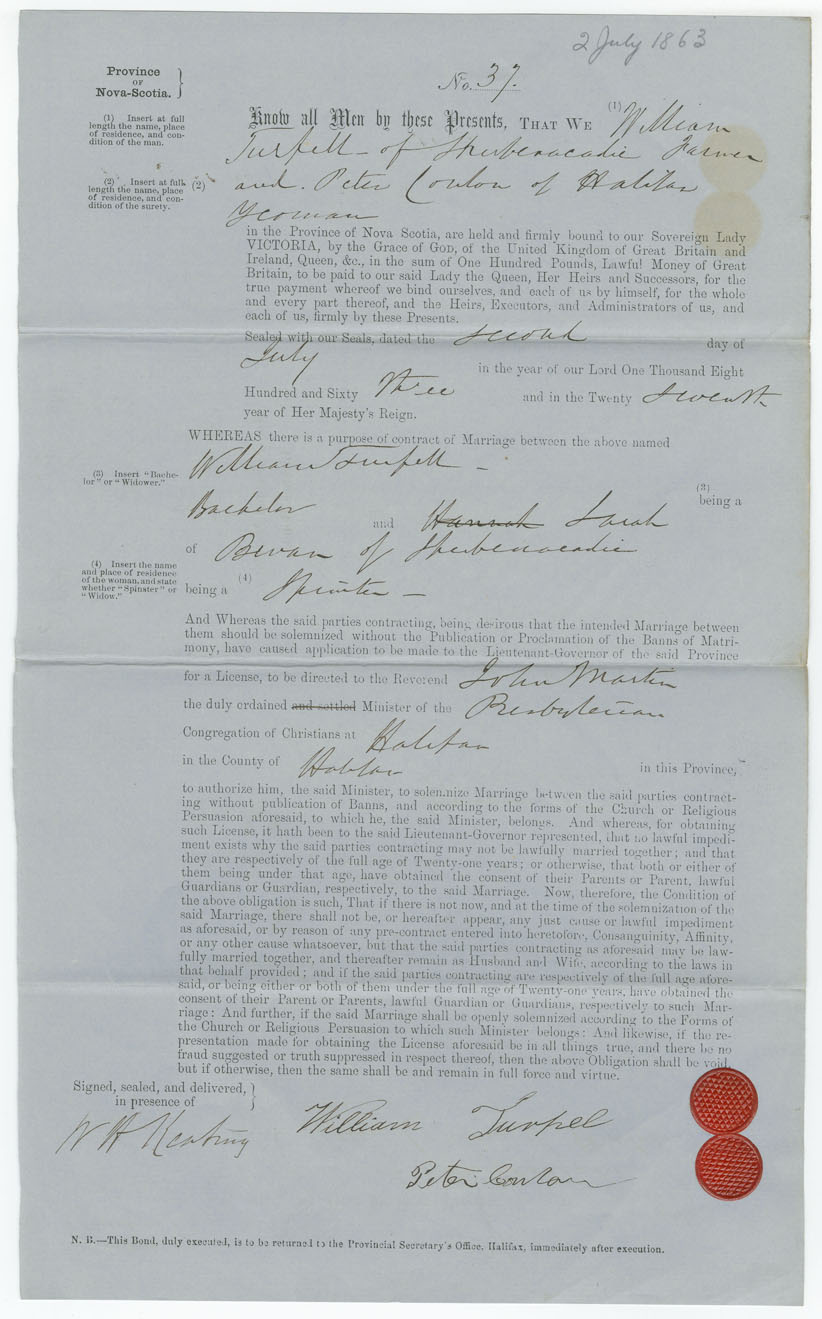 2 July 1863
Province
OF
Nova-Scotia.
No. 37.
(1) Insert at full
length the name, place
of residence, and con-
dition of the man.
Know all Men by these Presents, THAT WE (1) William
Turpell - of Shubenacadie Farmer
(2) Insert at full
length the name, place
of residence, and con-
dition of the surety.
(2) and. Peter Conlon of Halifax
Yeoman
in the Province of Nova Scotia, are held and firmly bound to our Sovereign Lady
VICTORIA, by the Grace of GOD, of the United Kingdom of Great Britain and
Ireland, Queen, &c., in the sum of One Hundred Pounds, Lawful Money of Great
Britain, to be paid to our said Lady the Queen, Her Heirs and Successors, for the
true payment whereof we bind ourselves, and each of us by himself, for the whole
and every part thereof, and the Heirs, Executors, and Administrators of us, and
each of us, firmly by these Presents.
Sealed with our Seals, dated the second day of
July in the year of our Lord One Thousand Eight
Hundred and Sixty Three and in the Twenty Seventh
year of Her Majesty's Reign.
WHEREAS there is a purpose of contract of Marriage between the above named
William Turpell -
(3) Insert "Bache-
lor" or "Widower."
(3) being a
Bachelor and Hannah Sarah
of Bevan of Shubenacadie
(4) Insert the name
and place of residence
of the woman, and state
whether "Spinster" or
"Widow."
being a (4) Spinster -
And Whereas the said parties contracting, being desirous that the intended Marriage between
them should be solemnized without the Publication or Proclamation of the Banns of Matri-
mony, have caused application to be made to the Lieutenant-Governor of the said Province
for a License, to be directed to the Reverend John Martin
the duly ordained and settled Minister of the Presbyterian
Congregation of Christians at Halifax
in the County of Halifax in this Province,
to authorize him, the said Minister, to solemnize Marriage between the said parties contract-
ing without publication of Banns, and according to the forms of the Church or Religious
Persuasion aforesaid, to which he, the said Minister, belongs. And whereas, for obtaining
such License, it hath been to the said Lieutenant-Governor represented, that no lawful impedi-
ment exists why the said parties contracting may not be lawfully married together; and that
they are respectively of the full age of Twenty-one years; or otherwise, that both or either of
them being under that age, have obtained the consent of their Parents or Parent, lawful
Guardians or Guardian, respectively, to the said Marriage. Now, therefore, the Condition of
the above obligation is such, That if there is not now, and at the time of the solemnization of the
said Marriage, there shall not be, or hereafter appear, any just cause or lawful impediment
as aforesaid, or by reason of any pre-contract entered into heretofore, Consanguinity, Affinity,
or any other cause whatsoever, but that the said parties contracting as aforesaid may be law-
fully married together, and thereafter remain as Husband and Wife, according to the laws in
that behalf provided; and if the said parties contracting are respectively of the full age afore-
said, or being either or both of them under the full age of Twenty-one years, have obtained the
consent of their Parent or Parents, lawful Guardian or Guardians, respectively to such Mar-
riage: And further, if the said Marriage shall be openly solemnized according to the Forms of
the Church or Religious Persuasion to which such Minister belongs: And likewise, if the re-
presentation made for obtaining the License aforesaid be in all things true, and there be no
fraud suggested or truth suppressed in respect thereof, then the above Obligation shall be void,
but if otherwise, then the same shall be and remain in full force and virtue.
Signed, sealed, and delivered,
in presence of
W H Keating William Turpel
Peter Conlon
N. B.—This Bond, duly executed, is to be returned to the Provincial Secretary's Office, Halifax, immediately after execution.